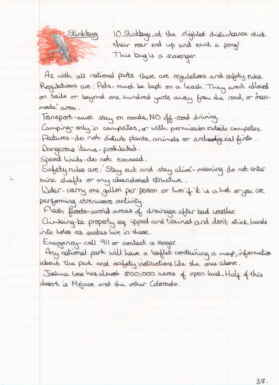 Stinkbug
10. Stinkbug, at the slightest disturbance stick
their rear end up and emit a pong!
This bug is a scavenger.
As with all national parks there are regulations and safety rules.
Regulations are: Pets - must be kept on a leash. They aren't allowed
on trails or beyond one hundred yards away from the road, or
area.
Transport - must stay on roads, NO off-road driving.
Camping - only in campsites, or with permission outside campsites.
Features - do not disturb plants, animals or archaeological finds
Dangerous items - prohibited.
Speed limits - do not exceed.
Safety rules are: Stay out and stay alive - meaning do not enter
mine shafts or any abandoned structure.
Water - carry one gallon per person or two if it is hot or you are
performing strenuous activity.
Flash floods - avoid areas of drainage after bad weather
Climbing - be properly equipped and trained and don't stick hands
into holes as snakes live in these.
Emergency - call 911 or contact a ranger
Any national park will have a leaflet containing a map, information
about the park and safety instructions like the ones above.
Joshua tree has almost 800,000 acres of open land. Half of this
desert is Mojave and the other Colorado.